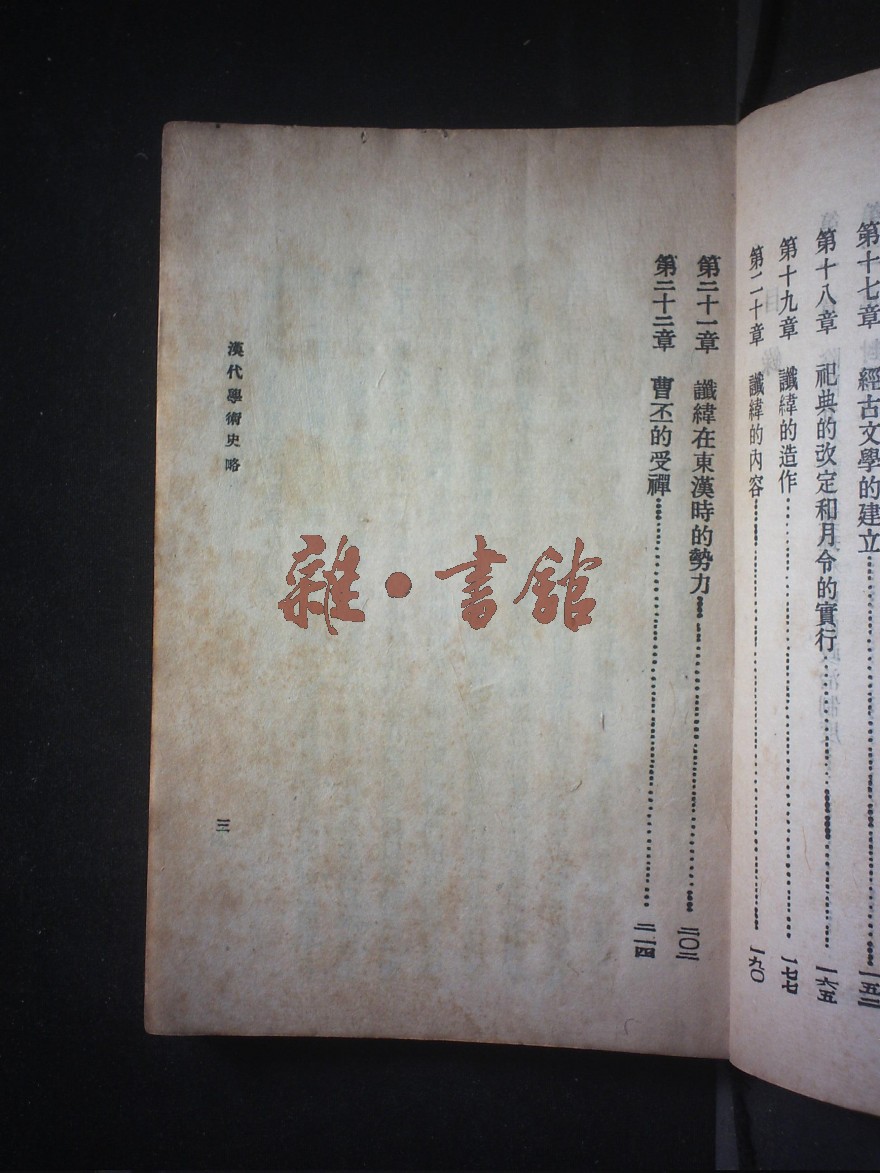 第十七章 經古文學的建立 一五二
第十八章 祀典的改定和月令的實行 一六五
第十九章 讖緯的造作 一七七
第二十章 讖緯的內容 一九〇
第二十一章 讖緯在東漢時的勢力 二〇二
第二十二章 曹丕的受禪 二一四
漢代學術史略
三
雜·書館